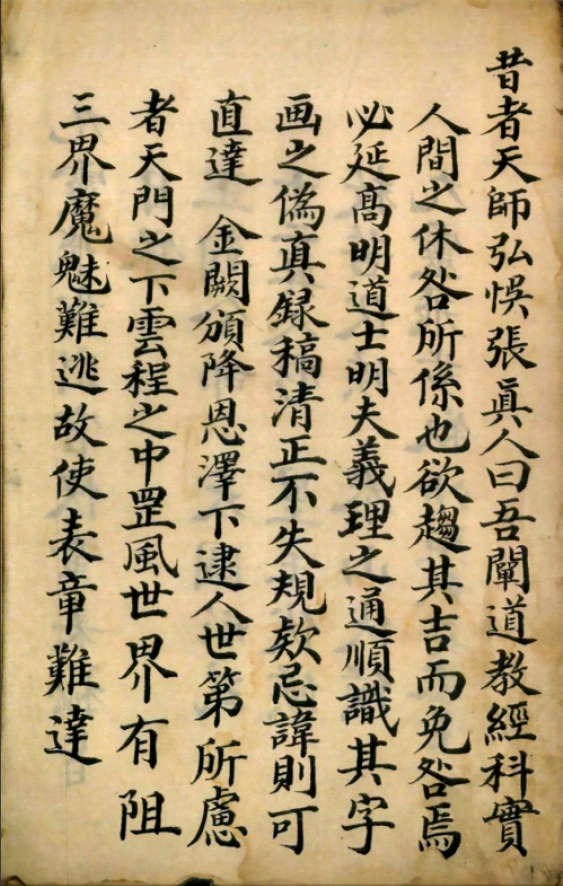 昔者天師弘悮張眞人曰吾闡道教經科實
人間之休咎所係也欲趨其吉而免咎焉
必延高明道士明夫義理之通順識其字
画之偽真録稿清正不失規欵忌諱則可
直達　金闕頒降恩澤下逮人世第所慮
者天門之下雲程之中罡風世界有阻
三界魔魅難逃故使表章難達